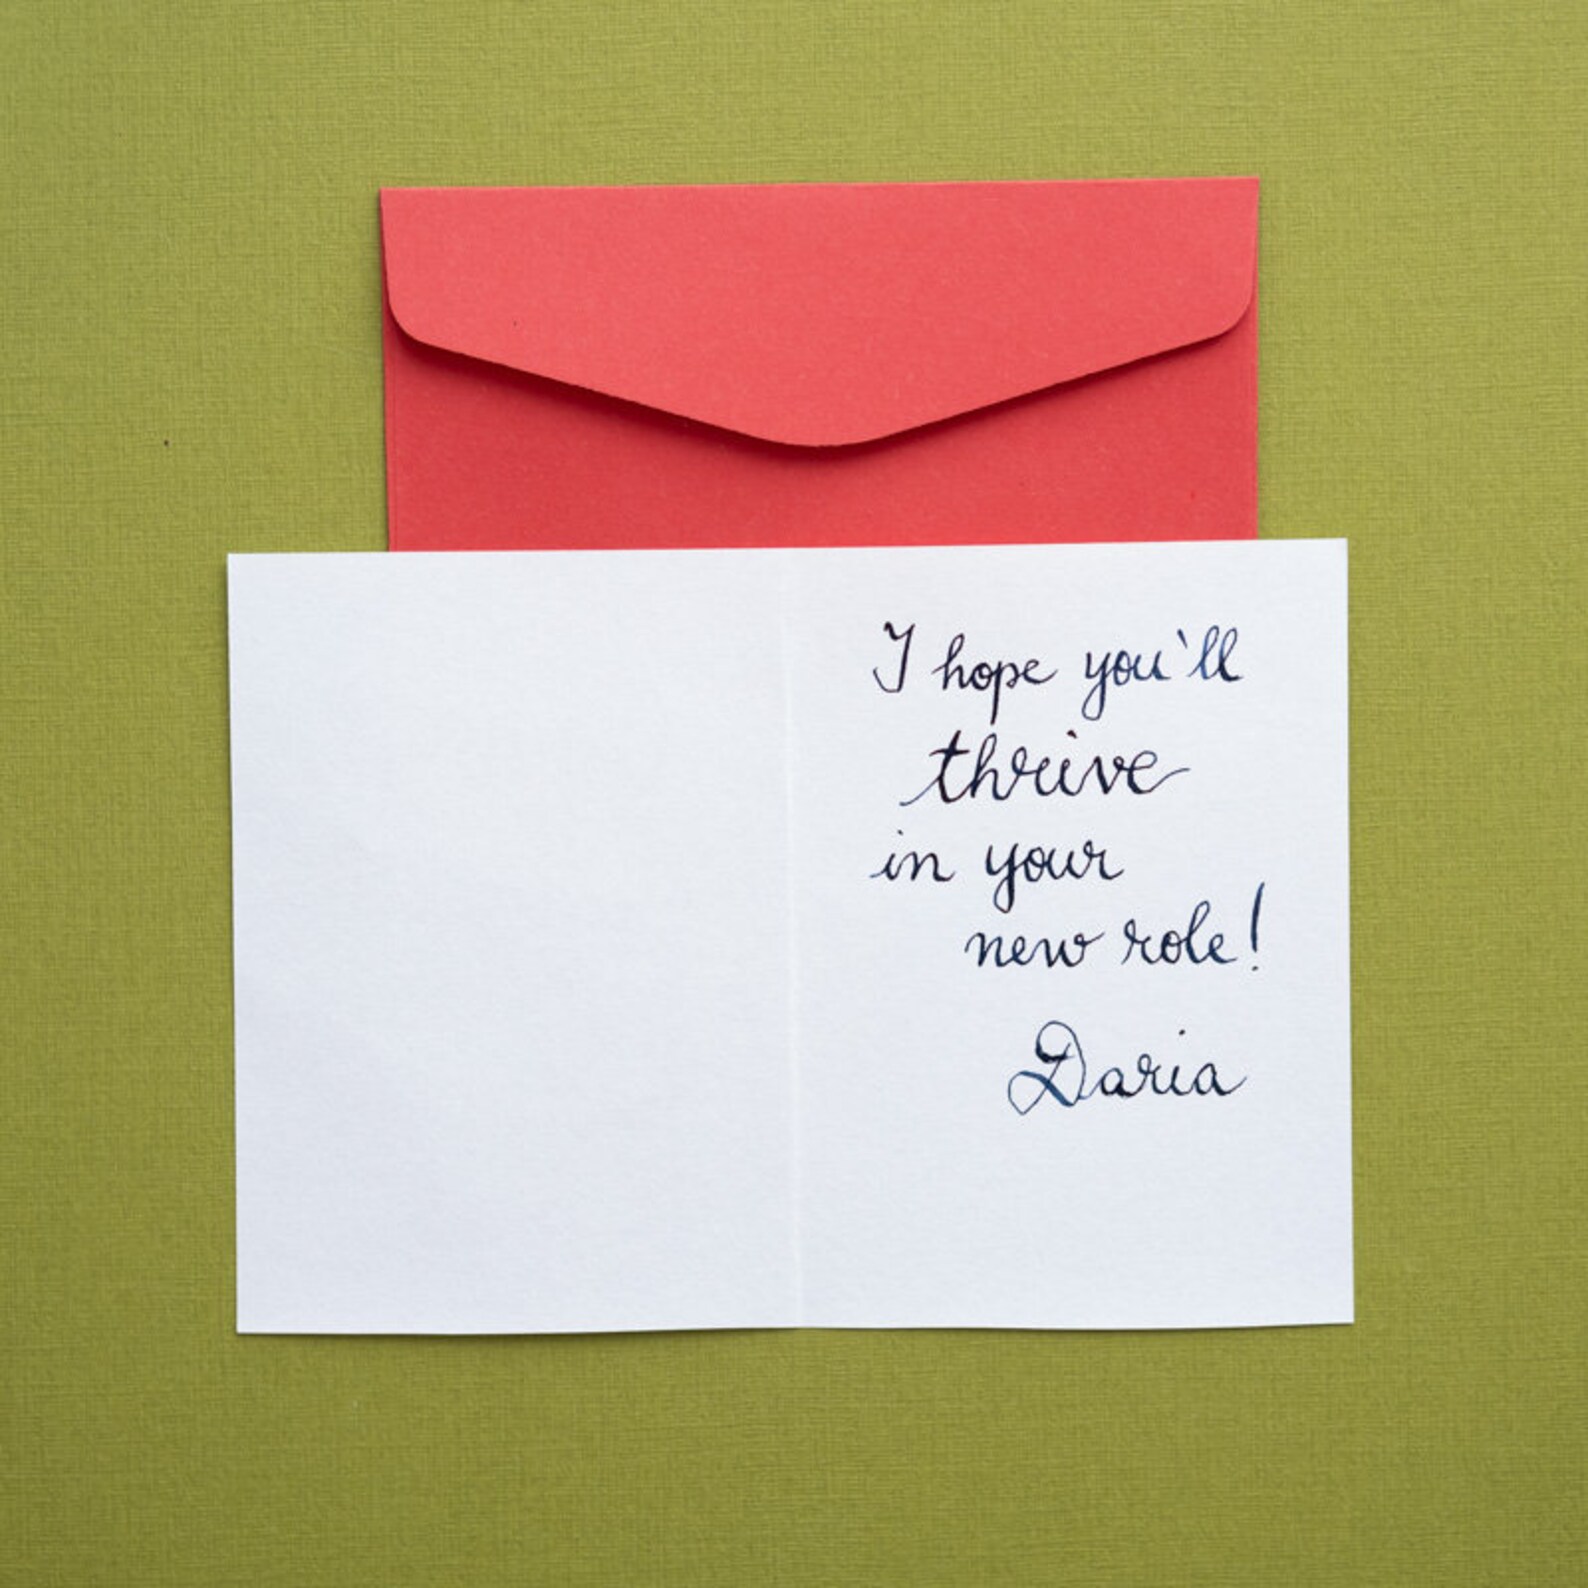 I hope you'll
thrive
in your
new role!
Daria